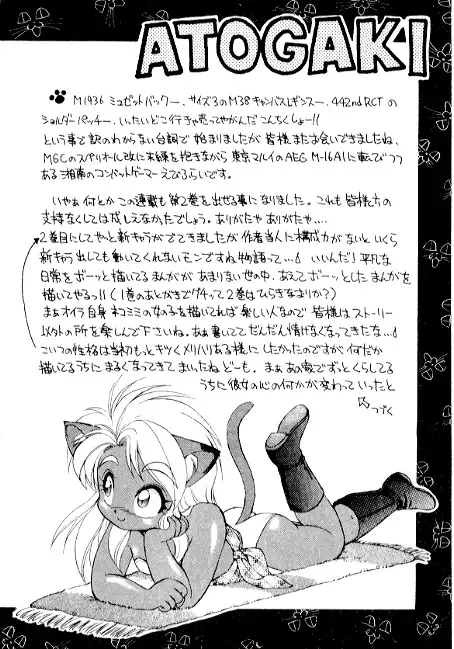 ATOGAKI
M1936 ミュゼットバッグー、サイズ3のM38キャンバスレギンスー、442nd RCTの
ショルダーパッチー、いったいどこ行きゃ売ってやがんだこんちくしょー!!
という事で訳のわからない台詞で始まりましたが皆様またお会いできましたね、
MGCのスペリオール改に未練を抱きながら東京マルイのAEG M-16A1に転びつつ
ある湘南のコンバットゲーマーえびふらいです。
いやぁ何とかこの連載も第2巻を出せる事になりました。これも皆様方の
支持なくしては成しえなかたでしょう。ありがたや ありがたや‥‥
2巻目にしてやっと新キャラがでてきましたが作者当人に構成力がないといくら
新キャラ出しても動いてくれないモンですね物語って…! いいんだ!平凡な
日常をボーッと描いてるまんががあまりない世の中、あえてボーッとしたまんがを
描いてやるっ!!(1巻のあとがきでグチって2巻はひらきなおりか?)
まぁオイラ自身ネコミミの女の子を描いてれば楽しい人なので皆様はストーリー
以外の所を楽しんで下さいね。あぁ書いててだんだん情けなくなってきたな…!
こいつの性格は当初もっとキツくメリハリある様にしたかったのですが何だか
描いてるうちにまるくなってきてまいったねどーも。まぁあの家でずっとくらしてる
うちに彼女の心の何かが変わっていったと
つづく